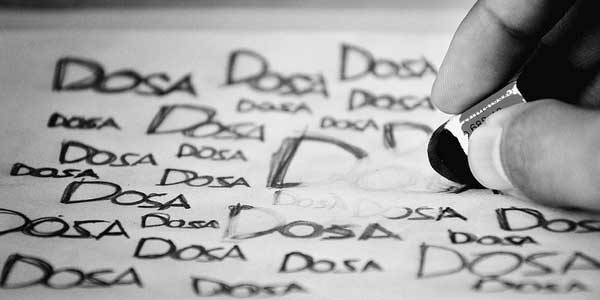 DOSA DOSA DOSA
DOSA DOSA
DOSA DOSA DOSA
DOSA DOSA D
DOSA DOSA
DOSA DOSA DOSA
DOSA DOSA DOSA DOSA
DOSA DOSA DOSA
DOSA DOSA DOSA
DOSA DOSA DOSA